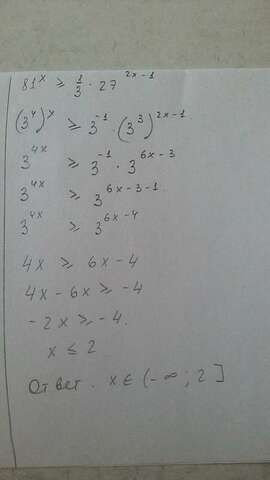 81^x ≥ 1/3 · 27^(2x-1)
(3^4)^x ≥ 3^-1 · (3^3)^(2x-1)
3^4x ≥ 3^-1 · 3^(6x-3)
3^4x ≥ 3^(6x-3-1)
3^4x ≥ 3^(6x-4)
4x ≥ 6x-4
4x-6x ≥ -4
-2x ≥ -4.
x ≤ 2
Ответ. x ∈ (-∞; 2]